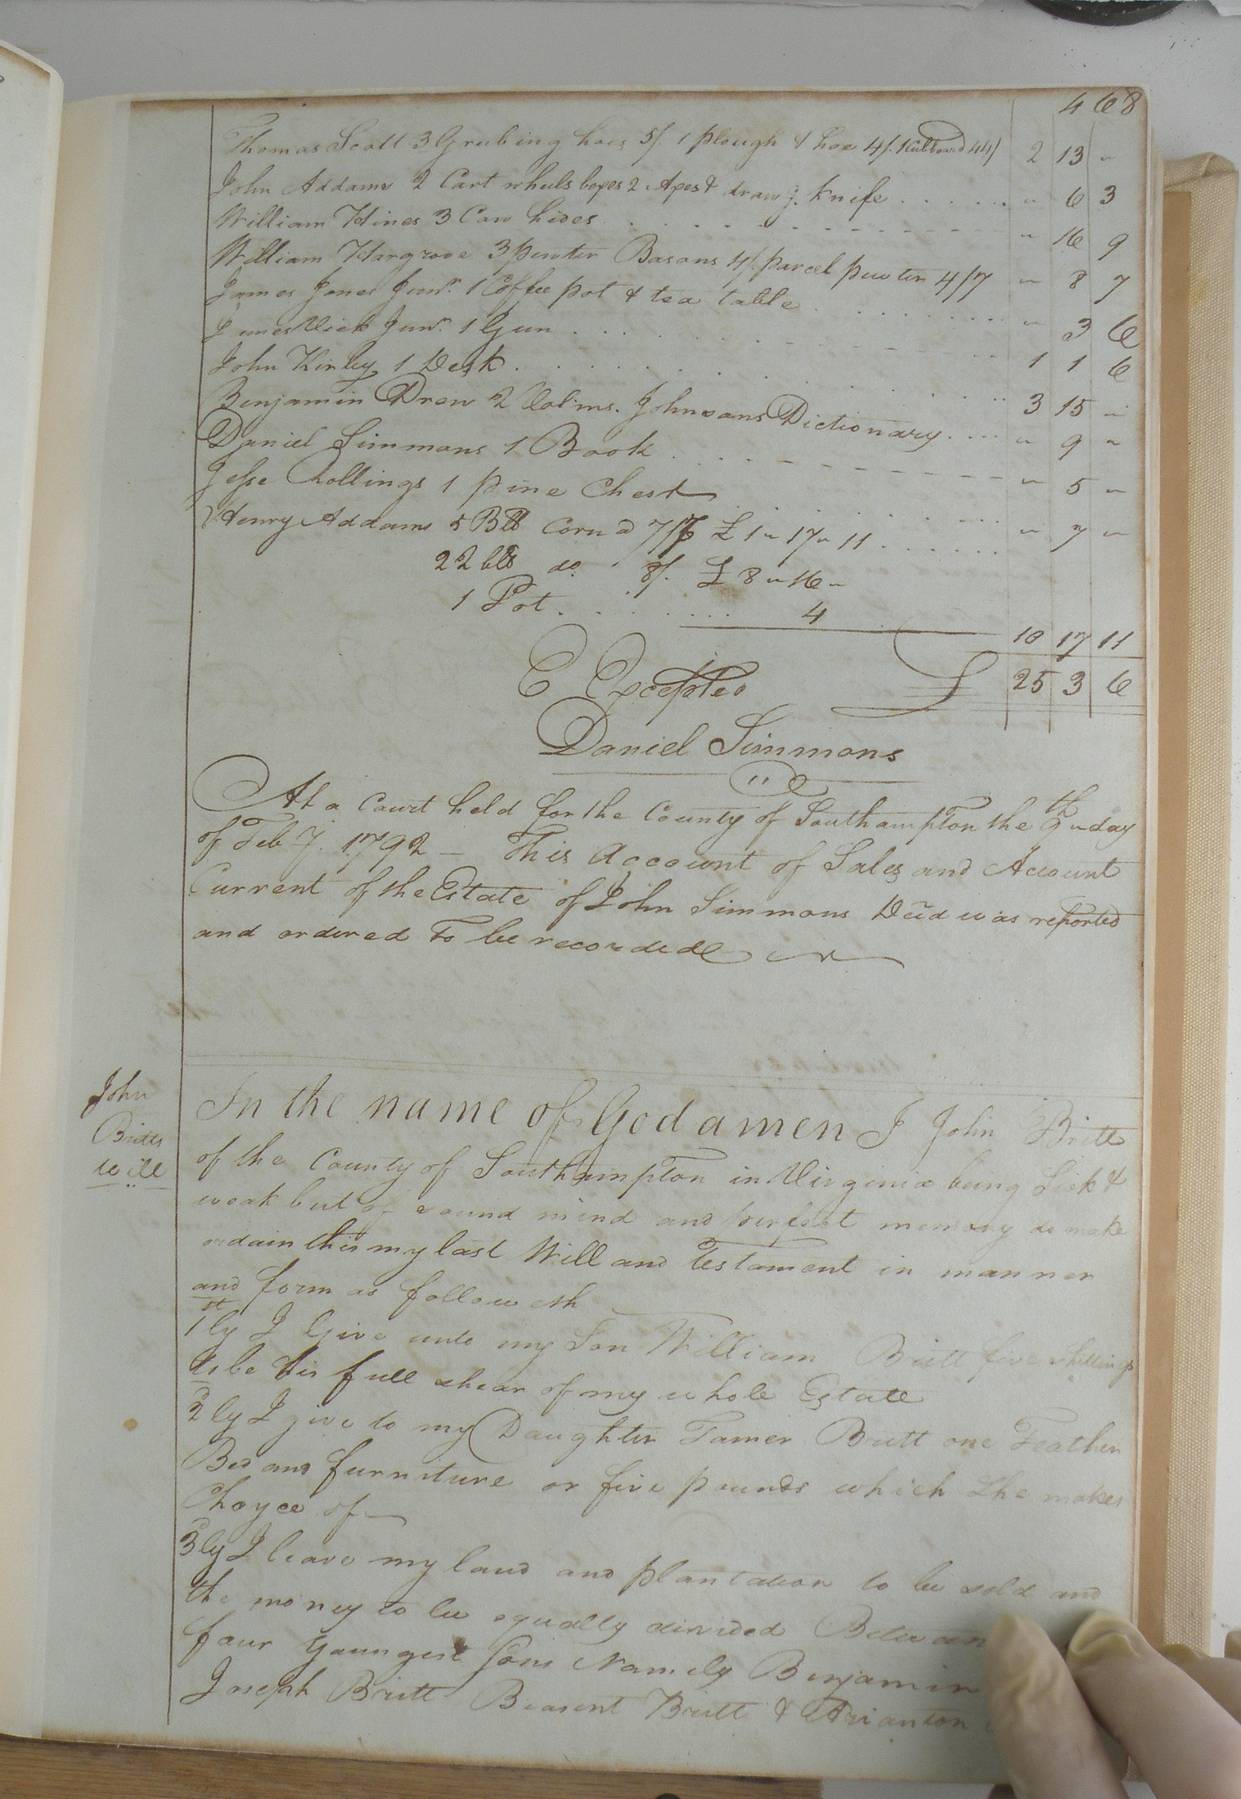 468
Thomas Scott 3 Grubing hoes 5/. 1 plough & hoe 4/. 1 Cutboard 44/ 2 13 "
John Addams 2 Cart wheels boxes 2 Axes & drawg. knife . . . . . . " 6 3
William Hines 3 Cow hides . . . " 16 9
William Hargrove 3 pewter Basons 4/. parcel pewter 4/7 " 8 7
James Jones Junr. 1 Coffee pot & tea table . . . " 3 6
James Vick Junr. 1 Gun . . . 1 1 6
John Kirby 1 Desk . . . 3 15 "
Benjamin Drew 2 Volms. Johnsons Dictionary . . . " 9 "
Daniel Simmons 1 Book . . . " 5 "
Jesse Hollings 1 pine Chest . . . " 7 "
Henry Addams 5 Blls Corn @ 7/7 £ 1 " 17 " 11 . . . . . .
22 blls do. 8/. £ 8 " 16 "
1 Pot . . . . . . . . . 4
10 17 11
E Excepted £ 25 3 6
Daniel Simmons
At a Court held for the County of Southampton the 9th day
of Feby. 1792 — This Account of Sales and Account
Current of the Estate of John Simmons Decd was reported
and ordered to be recorded
John
Britts
will
In the name of God amen I John Britt
of the County of Southampton in Virginia being Sick &
weak but of sound mind and perfect memory do make
ordain this my last Will and testament in manner
and form as followeth
1stly I Give unto my Son William Britt five shillings
to be his full shear of my whole Estate
2ly I give to my Daughter Tamer Britt one Feather
Bed and furniture or five pounds which she makes
Choyce of
3ly I leave my land and plantation to be sold and
the money to be equally divided Between
four youngest Sons Namely Benjamin
Joseph Britt Beasent Britt & Arianton